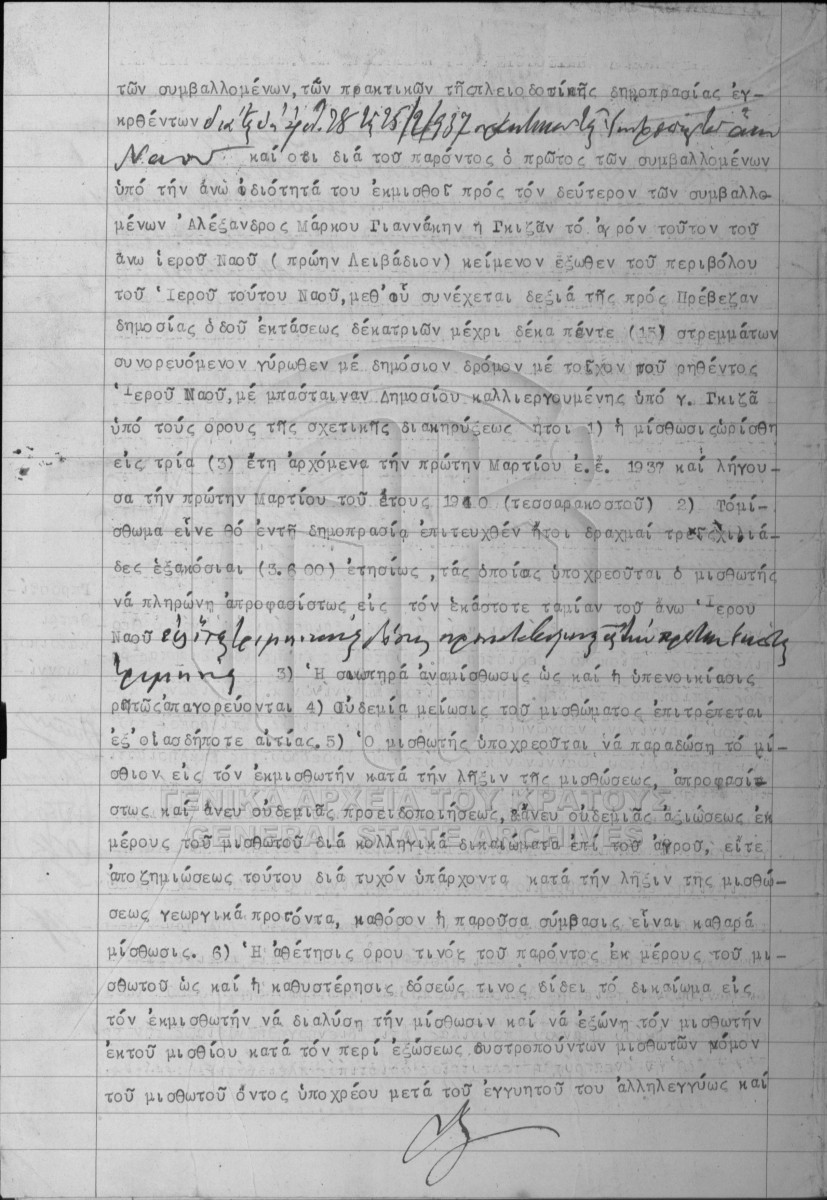 τῶν συμβαλλομένων, τῶν πρακτικῶν τῆς πλειοδοτικῆς δημοπρασίας ἐγ-
κριθέντων διὰ τῆς ὑπ' ἀριθ. 28 τῆς 25/2/937
Ναοῦ καί οτι διά τοῦ παρόντος ὁ πρῶτος τῶν συμβαλλομένων
ὑπό τήν ἀνω ἰδιότητά του ἐκμισθοῖ πρός τόν δεύτερον τῶν συμβαλλο-
μένων Ἀλέξανδρος Μάρκου Γιαννάκην ἤ Γκιζᾶν τό ἀγρόν τοῦτον τοῦ
ἄνω ἱεροῦ Ναοῦ ( πρώην Λειβάδιον) κείμενον ἔξωθεν τοῦ περιβόλου
τοῦ Ἱεροῦ τούτου Ναοῦ, μεθ'οὗ συνέχεται δεξιά τῆς πρός Πρέβεζαν
δημοσίας ὁδοῦ ἐκτάσεως δέκατριῶν μέχρι δέκα πέντε (15) στρεμμάτων
συνορευόμενον γύρωθεν μέ δημόσιον δρόμον μέ τοῖχον τοῦ ρηθέντος
Ἱεροῦ Ναοῦ, μέ μπάσταιναν Δημοσίου καλλιεργουμένης ὑπό γ. Γκιζᾶ
ὑπό τούς ορους τῆς σχετικῆς διακηρύξεως ἤτοι 1) ἡ μίσθωσις ὡρίσθη
εἰς τρία (3) ἔτη ἀρχόμενα τήν πρώτην Μαρτίου ἐ.ἔ. 1937 καί λήγου-
σα τήν πρώτην Μαρτίου τοῦ ἔτους 1940 (τεσσαρακοστοῦ) 2) Τόμί-
σθωμα εἶνε θό ἐντῆ δημοπρασία ἐπιτευχθέν ἤτοι δραχμαί τρεῖς χιλιά-
δες ἑξακόσιαι (3.600) ἐτησίως, τάς ὁποίας ὑποχρεοῦται ὁ μισθωτής
νά πληρώνη ἀπροφασίστως εἰς τόν ἑκάστοτε ταμίαν τοῦ ἄνω Ἱερου
Ναοῦ
3) Ἡ σιωπηρά ἀναμίσθωσις ὡς καί ἡ ὑπενοικίασις
ρητῶς ἀπαγορεύονται 4) Οὐδεμία μείωσις τοῦ μισθώματος ἐπιτρέπεται
ἐξ'οἱασδήποτε αἰτίας. 5) Ὁ μισθωτής ὑποχρεοῦται νά παραδώση τό μί-
σθιον εἰς τόν ἐκμισθωτήν κατά τήν λῆξιν τῆς μισθώσεως, ἀπροφασί-
στως καί ἄνευ οὐδεμιᾶς προειδοποιήσεως, &ἄνευ οὐδεμιᾶς ἀξιώσεως ἐκ
μέρους τοῦ μισθωτοῦ διά κολληγικά δικαιώματα ἐπί τοῦ ἀγροῦ, εἴτε
ἀποζημιώσεως τούτου διά τυχόν ὑπάρχοντα κατά τήν λῆξιν τῆς μισθώ-
σεως γεωργικά προϊόντα, καθόσον ἡ παροῦσα σύμβασις εἶναι καθαρά
μίσθωσις. 6) Ἡ ἀθέτησις ορου τινός τοῦ παρόντος ἐκ μέρους τοῦ μι-
σθωτοῦ ὡς καί ἡ καθυστέρησις δόσεώς τινος δίδει τό δικαίωμα εἰς
τόν ἐκμισθωτήν νά διαλύση τήν μίσθωσιν καί νά ἐξώνη τόν μισθωτήν
ἐκτοῦ μισθίου κατά τόν περί ἐξώσεως δυστροπούντων μισθωτῶν νόμον
τοῦ μισθωτοῦ ὄντος ὑποχρέου μετά τοῦ ἐγγυητοῦ του ἀλληλεγγύως καί
ΓΕΝΙΚΑ ΑΡΧΕΙΑ ΤΟΥ ΚΡΑΤΟΥΣ
GENERAL STATE ARCHIVES